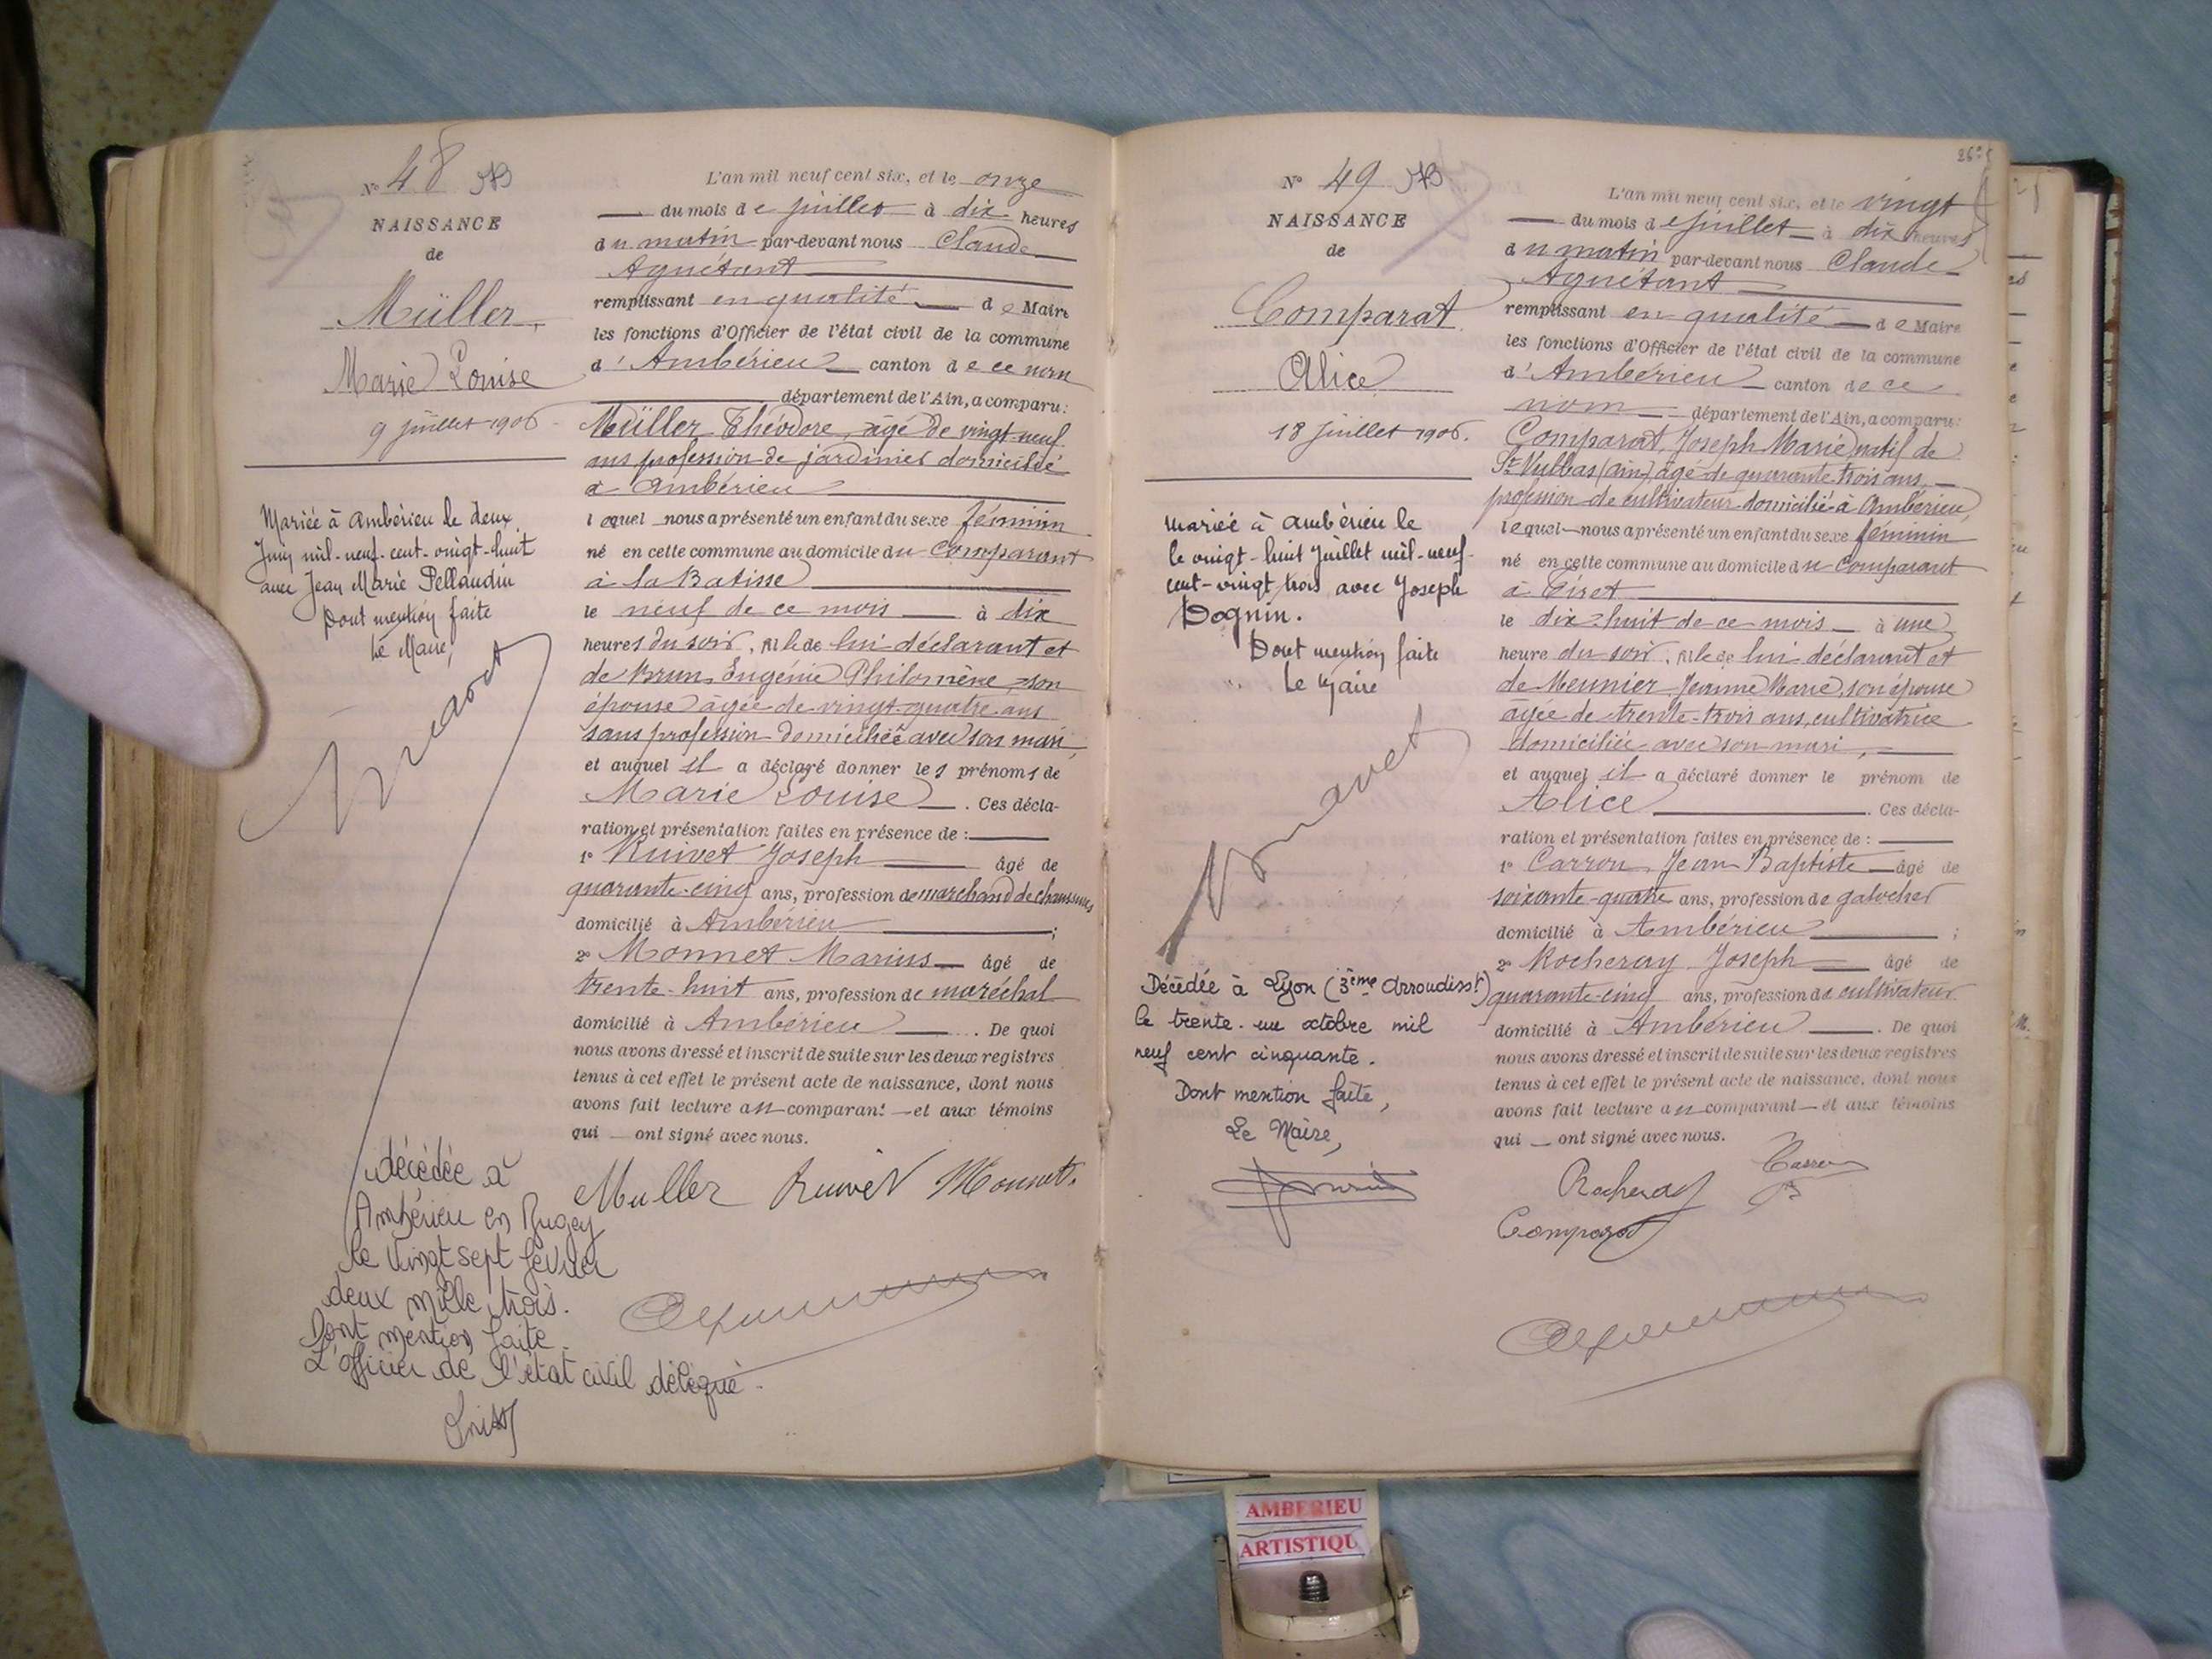 N° 48
NAISSANCE
de
Müller
Marie Louise
9 juillet 1906
Mariée à Ambérieu le deux
Juin mil-neuf-cent-vingt-huit
avec Jean Marie Pellaudin
Dont mention faite
Le Maire,
décédée à
Ambérieu en Bugey
le vingt sept février
deux mille trois.
Dont mention faite
L'officier de l'état civil délégué.
L'an mil neuf cent six, et le onze
du mois de juillet à dix heures
du matin par-devant nous Claude
Aguétant
remplissant en qualité de Maire
les fonctions d'Officier de l'état civil de la commune
d'Ambérieu canton de ce nom
département de l'Ain, a comparu:
Müller Théodore, âgé de vingt-neuf
ans profession de jardinier domicilié
à Ambérieu
lequel nous a présenté un enfant du sexe féminin
né en cette commune au domicile du comparant
à la Batisse
le neuf de ce mois à dix
heures du soir, fille de lui déclarant et
de Brun, Eugénie Philomène, son
épouse âgée de vingt-quatre ans
sans profession domiciliée avec son mari,
et auquel il a déclaré donner les prénoms de
Marie Louise. Ces décla-
ration et présentation faites en présence de:
1° Ruivet Joseph âgé de
quarante-cinq ans, profession de marchand de chaussures
domicilié à Ambérieu;
2° Monnet Marius âgé de
trente-huit ans, profession de maréchal
domicilié à Ambérieu. De quoi
nous avons dressé et inscrit de suite sur les deux registres
tenus à cet effet le présent acte de naissance, dont nous
avons fait lecture au comparant et aux témoins
qui ont signé avec nous.
Muller Ruivet Monnet.
N° 49
NAISSANCE
de
Comparat
Alice
18 juillet 1906.
mariée à Ambérieu le
le vingt-huit Juillet mil-neuf-
cent-vingt trois avec Joseph
Dognin.
Dont mention faite
Le Maire
Décédée à Lyon (3ème Arrondisst)
le trente-un octobre mil
neuf cent cinquante.
Dont mention faite,
Le Maire,
L'an mil neuf cent six, et le vingt
du mois de juillet à dix heures
du matin par-devant nous Claude
Aguétant
remplissant en qualité de Maire
les fonctions d'Officier de l'état civil de la commune
d'Ambérieu canton de ce
nom département de l'Ain, a comparu:
Comparat, Joseph Marie natif de
St Vulbas (Ain) âgé de quarante-trois ans,
profession de cultivateur domicilié à Ambérieu,
lequel nous a présenté un enfant du sexe féminin
né en cette commune au domicile du comparant
à Tiret
le dix-huit de ce mois à une
heure du soir, fille de lui déclarant et
de Meunier Jeanne Marie, son épouse
âgée de trente-trois ans, cultivatrice
domiciliée avec son mari,
et auquel il a déclaré donner le prénom de
Alice. Ces décla-
ration et présentation faites en présence de:
1° Carron, Jean Baptiste âgé de
soixante-quatre ans, profession de galocher
domicilié à Ambérieu;
2° Rocheray Joseph âgé de
quarante-cinq ans, profession de cultivateur
domicilié à Ambérieu. De quoi
nous avons dressé et inscrit de suite sur les deux registres
tenus à cet effet le présent acte de naissance, dont nous
avons fait lecture au comparant et aux témoins
qui ont signé avec nous.
Rocheray Carron
Comparat
AMBERIEU
ARTISTIQU